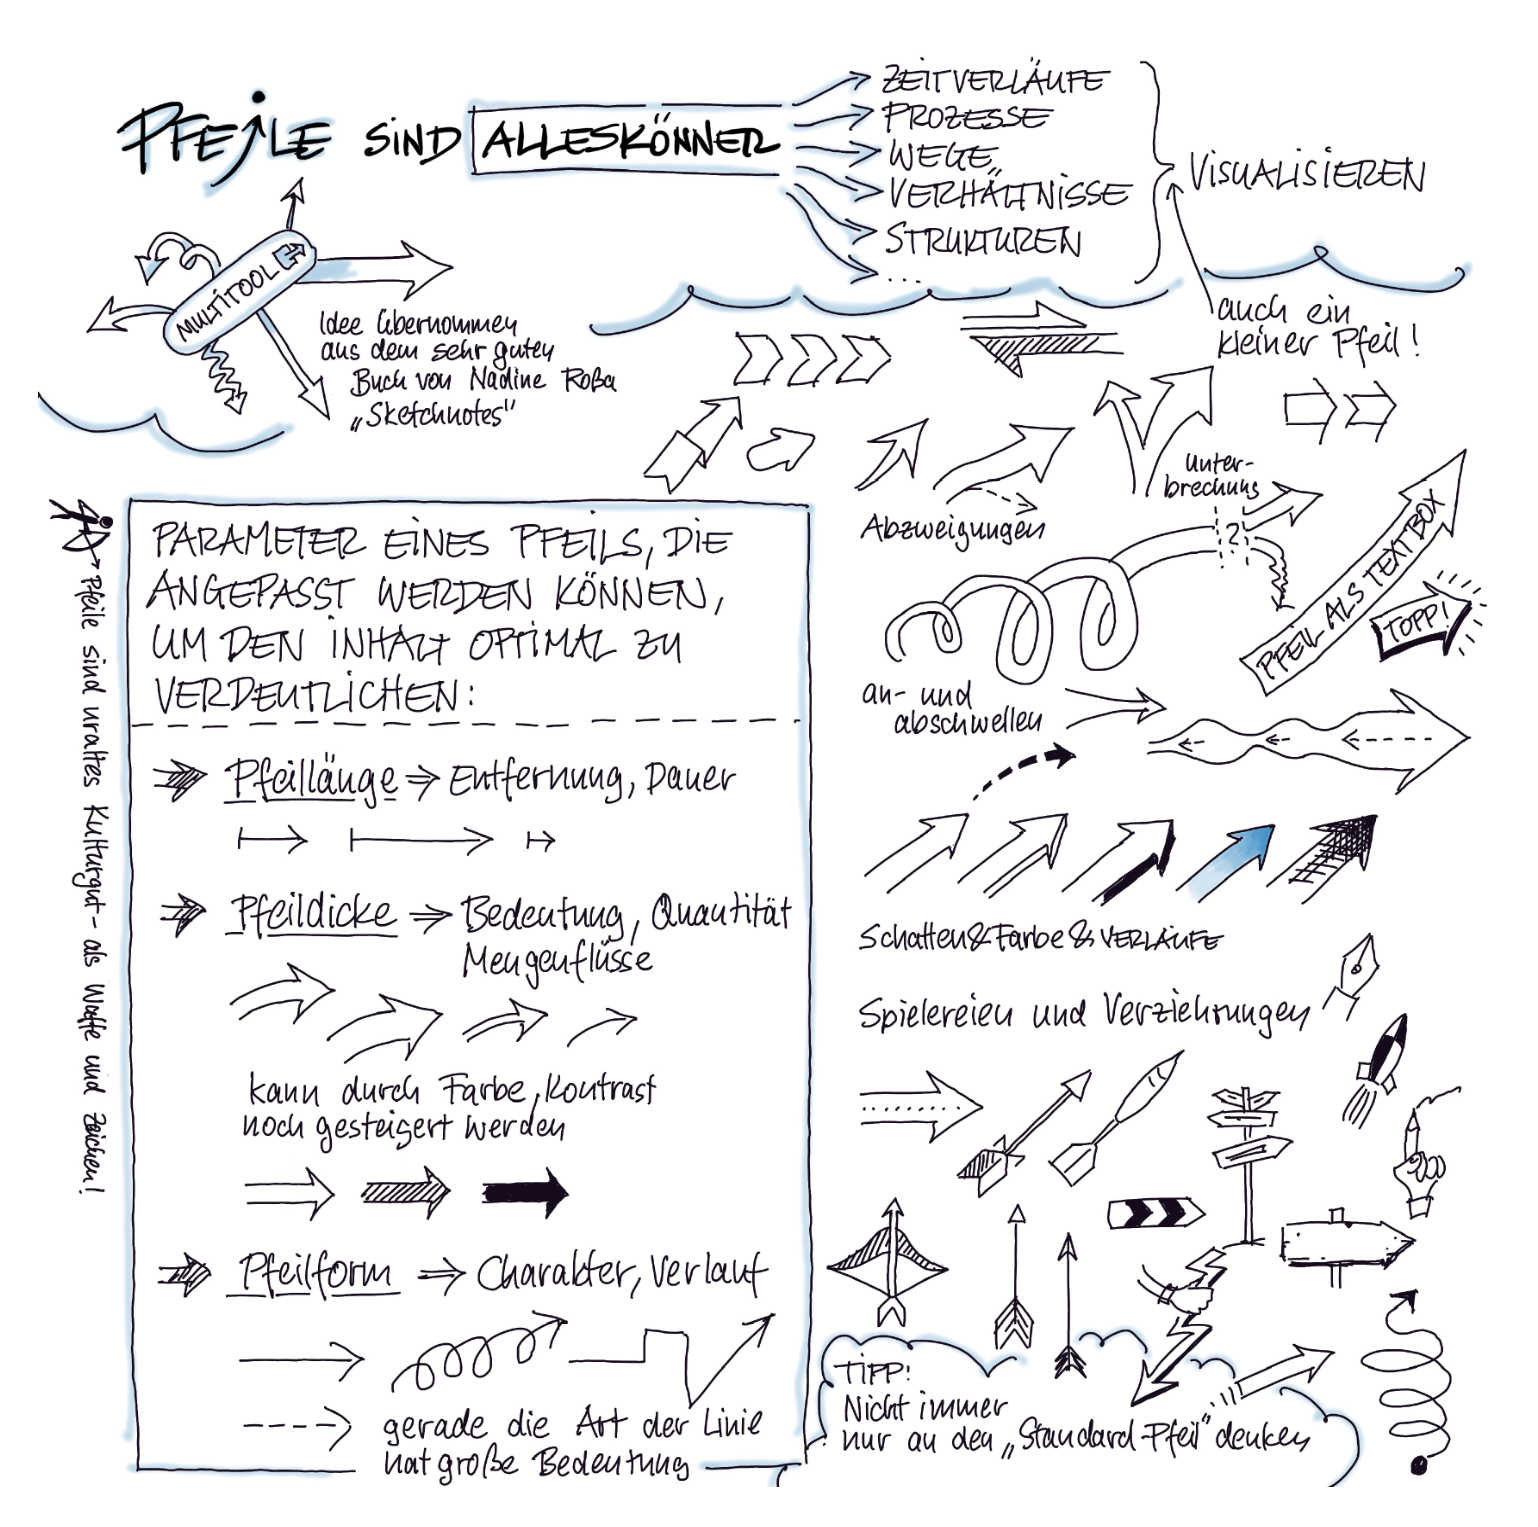 PFEILE SIND ALLESKÖNNER
ZEITVERLÄUFE
PROZESSE
WEGE
VERHÄLTNISSE
STRUKTUREN
...
VISUALISIEREN
auch ein
kleiner Pfeil!
MULTITOOL
Idee übernommen
aus dem sehr guten
Buch von Nadine Roßa
„Sketchnotes"
Pfeile sind uraltes Kulturgut - als Waffe und Zeichen!
PARAMETER EINES PFEILS, DIE
ANGEPASST WERDEN KÖNNEN,
UM DEN INHALT OPTIMAL ZU
VERDEUTLICHEN:
Pfeillänge ⇒ Entfernung, Dauer
Pfeildicke ⇒ Bedeutung, Quantität
Mengenflüsse
kann durch Farbe, Kontrast
noch gesteigert werden
Pfeilform ⇒ Charakter, Verlauf
gerade die Art der Linie
hat große Bedeutung
Abzweigungen
Unter-
brechung
?
PFEIL ALS TEXTBOX
TOPP!
an- und
abschwellen
Schatten & Farbe & VERLÄUFE
Spielereien und Verziehrungen
TIPP!
Nicht immer
nur an den „Standard-Pfeil" denken